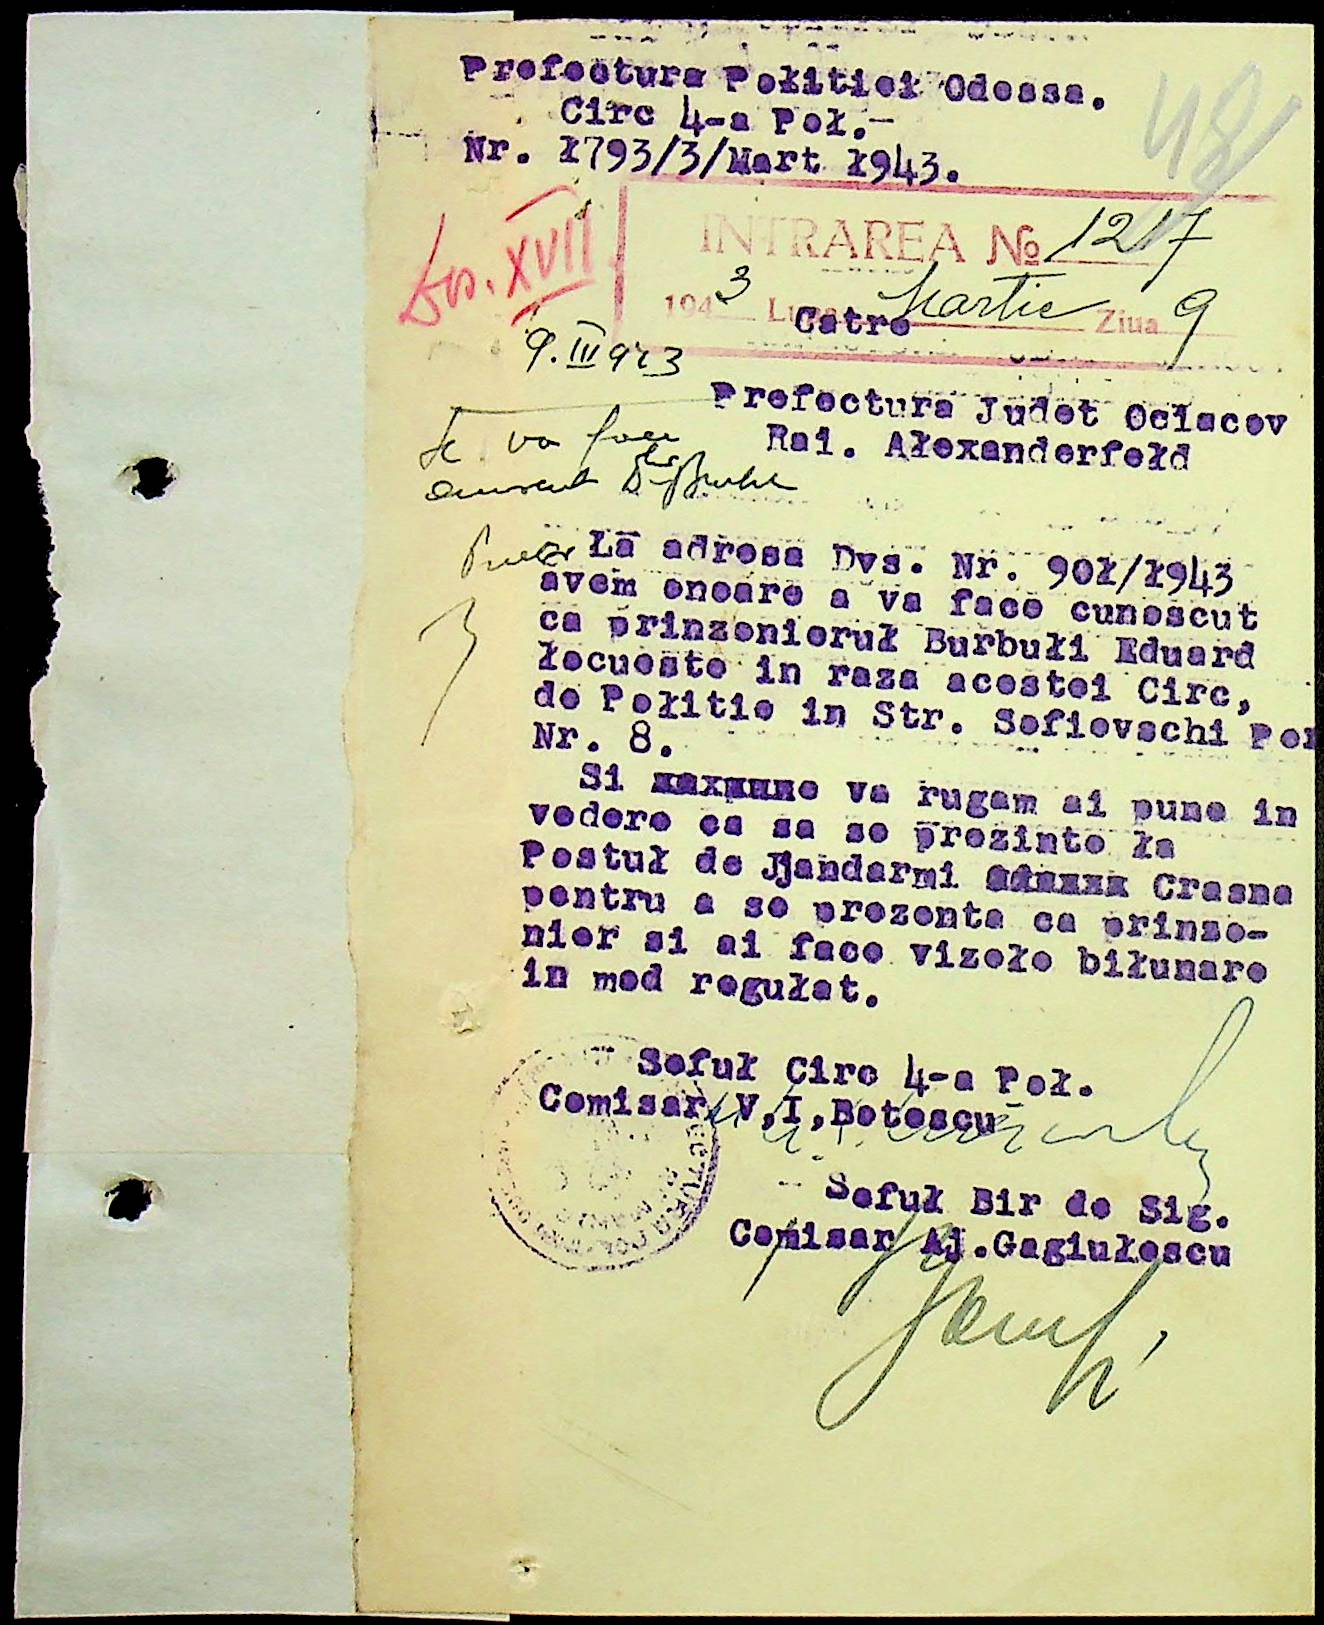 Prefectura Połitiei Odessa.
Circ 4-a Poł.-
Nr. ł793/3/Mart ł943.
48
INTRAREA No 1217
1943 Luna Martie Ziua 9
XVII
Catre
9.III 943
Prefectura Judet Ociacov
Rai. Ałexanderfełd
Se va face
Ła adresa Dvs. Nr. 90ł/ł943
avem onoare a va face cunoscut
ca prinzonieruł Burbułi Eduard
łocueste in raza acestei Circ,
de Połitie in Str. Sofievschi Por
Nr. 8.
Si va rugam ai pune in
vedere ca sa se prezinte ła
Postuł de Jjandarmi Crasna
pentru a se prezenta ca prinzo-
nier si ai face vizełe biłunare
in mod regułat.
Sefuł Circ 4-a Poł.
Comisar V,I,Botescu
Sefuł Bir de Sig.
Comisar Aj.Gagiułescu